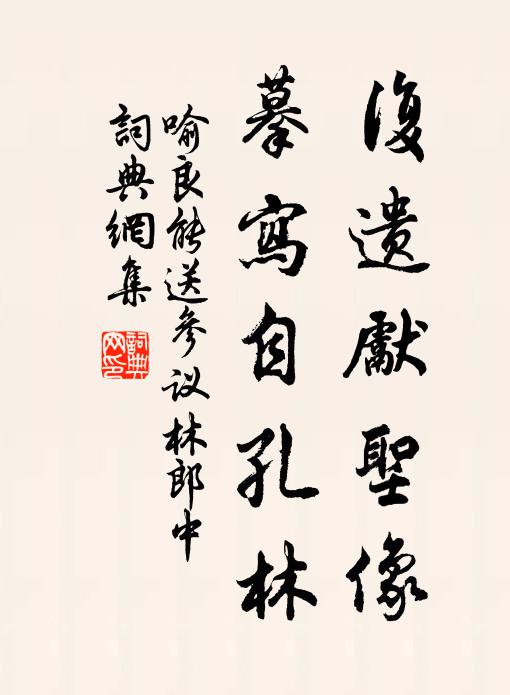 復遺獻聖像
摹寫自孔林
喻良能送參议林郎中
詞典網集
詞典网印